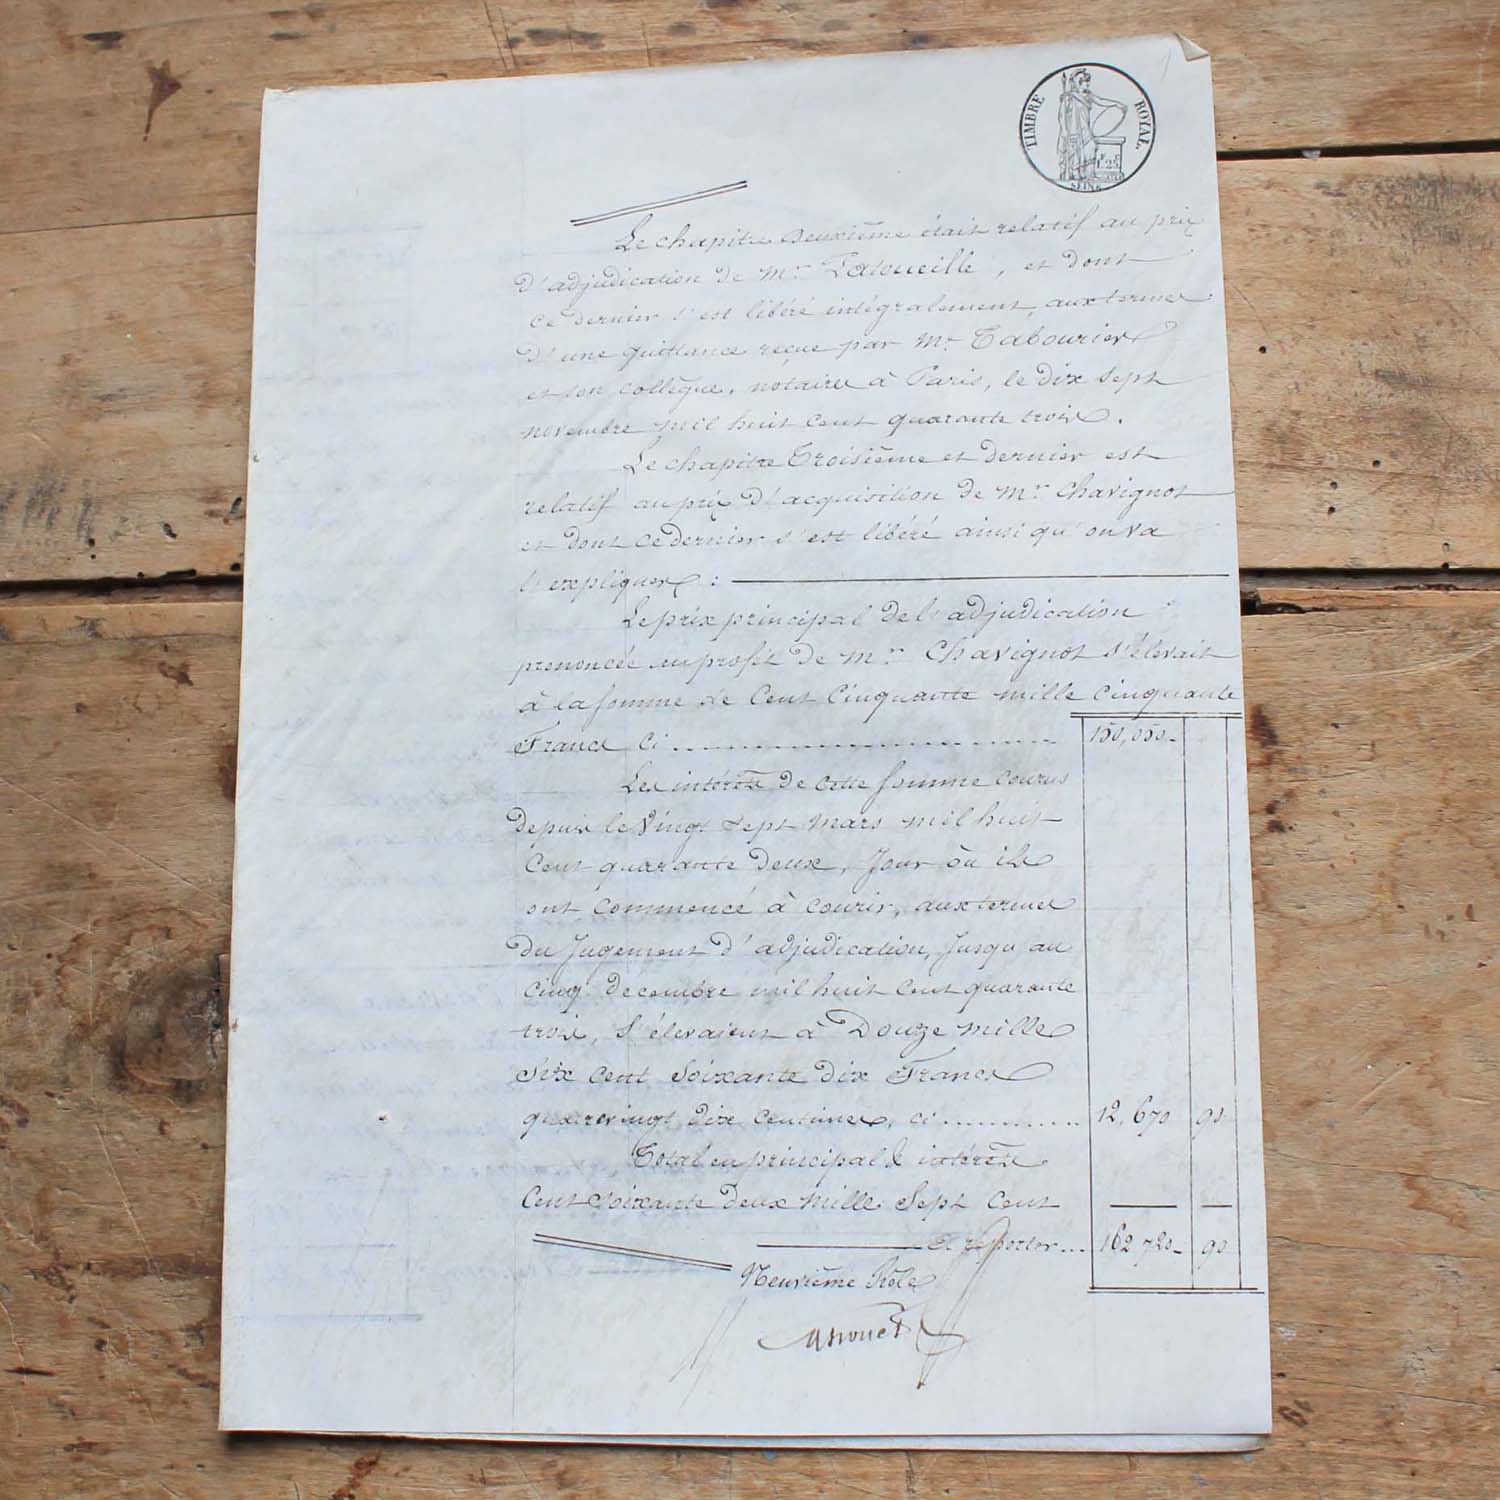 TIMBRE ROYAL
1F 25C
SEINE
Le chapitre deuxième était relatif au prix
d'adjudication de Mr , et dont
ce dernier s'est libéré intégralement, aux termes
d'une quittance reçue par Me Tabourier
et son collègue, notaires à Paris, le dix sept
novembre mil huit cent quarante trois.
Le chapitre Troisième et dernier est
relatif au prix d'acquisition de Mr Chavignot
et dont ce dernier s'est libéré ainsi qu'on va
l'expliquer :
Le prix principal de l'adjudication
prononcée au profit de Mr Chavignot s'élevait
à la somme de Cent Cinquante mille cinquante
Francs ci ........ 150,050-
Les intérêts de cette somme courus
depuis le Vingt sept mars mil huit
cent quarante deux, Jour où ils
ont commencé à courir, aux termes
du Jugement d'adjudication, Jusqu'au
cinq décembre mil huit cent quarante
trois, s'élevaient à Douze mille
six cent soixante dix Francs
quatrevingt dix centimes, ci ........ 12,670 90
Total en principal & intérêts
Cent soixante deux mille Sept Cent
à reporter... 162,720- 90
Neuvième Rôle